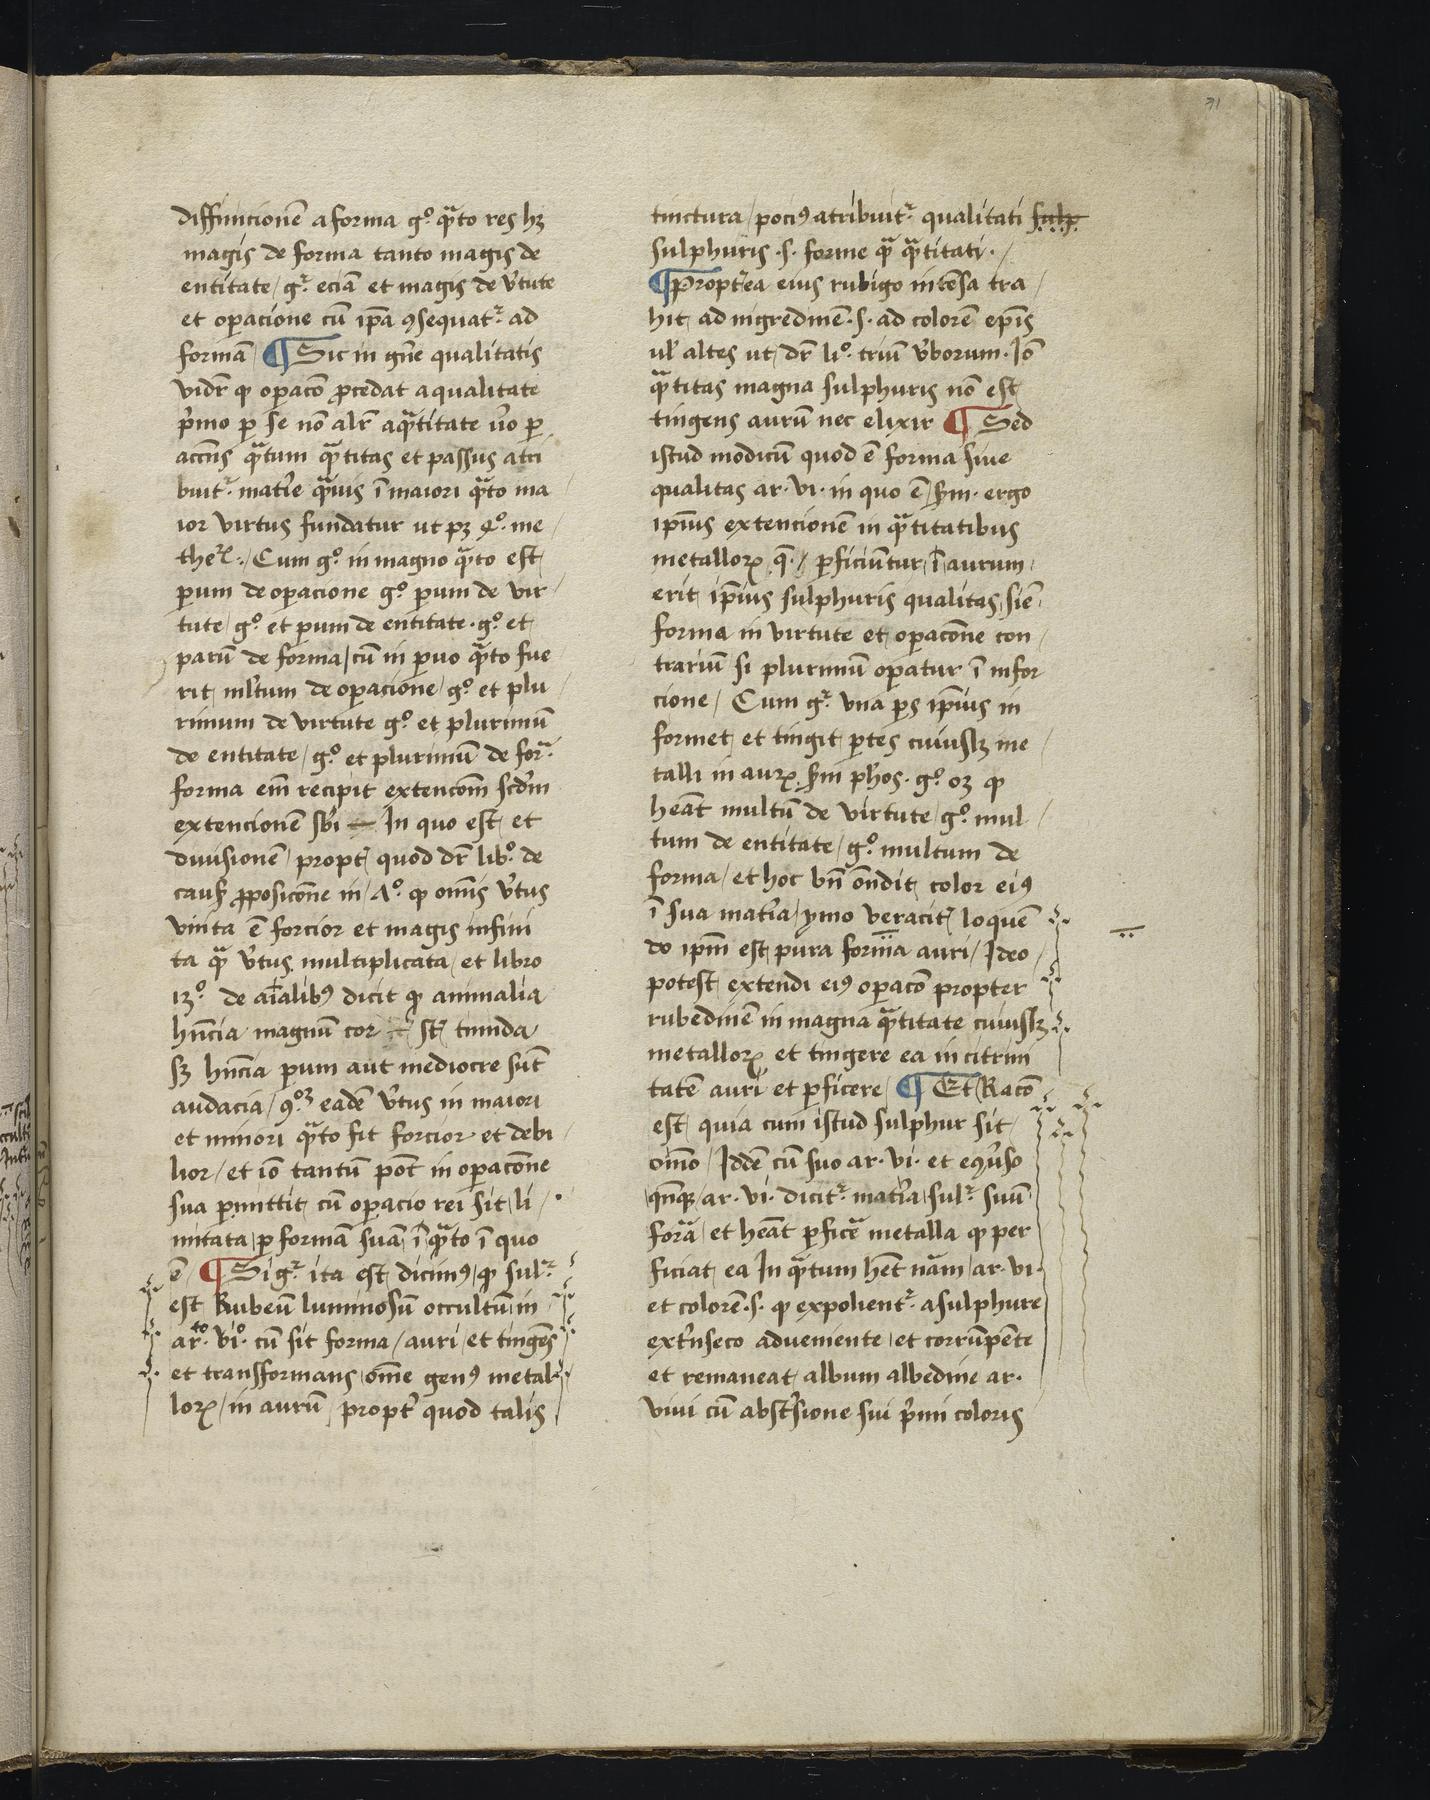 71
diffinicionē a forma gͦ qᷓto res hꝫ
magis de forma tanto magis de
entitate / gͬ eciā et magis de v̓tute
et oꝑacione cū ip̄a ꝯsequatͬ ad
formā ¶ Sic in gn̄e qualitatis
vidr̄ ꝙ oꝑacō ꝓcedat a qualitate
p̓mo ꝑ se nō alr̄ a qᷓtitate v̓o ꝑ
accn̄s qᷓtum qᷓtitas et passus atri
buitͬ mat̓ie qᷓuis ī maiori qᷓto ma
ior virtus fundatur ut pꝫ 4ͦ· me
Cum gͦ in magno qᷓto est
ꝑum de oꝑacione gͦ ꝑum de vir
tute / gͦ et ꝑum de entitate · gͦ et
parū de forma / cū in ꝑuo qᷓto fue
rit ml̓tum de oꝑacione / gͦ et plu
rimum de virtute gͦ et plurimū
de entitate / gͦ et plurimū de forᷓ·
forma em̄ recipit extencōm scd̓m
extencionē sb̓i In quo est et
diuisionē / propt̓ quod dr̄ libͦ· de
caus ꝓposicōne in / 1ͦ· ꝙ om̄is v̓tus
vnita ē forcior et magis infini
ta qᷓ v̓tus multiplicata / et libro
13ͦ· de aīalibꝰ dicit ꝙ animalia
hn̄cia magnū cor st̄ timida
sꝫ hn̄cia ꝑum aut mediocre sūt
audacia / eadē v̓tus in maiori
et minori qᷓto fit forcior et debi
lior / et iō tantū pōt in oꝑacōne
sua ꝑmittit cū oꝑacio rei sit / li
mitata / ꝑ formā suā / ī qᷓto ī quo
ē / ¶ Si gͬ ita est dicimꝰ / ꝙ sulͬ
est Rubeū luminosū occultū in
arͭᵒ· viͦ· cū sit forma / auri / et tingēs
et transformans / om̄e genꝰ metal
loꝝ / in aurū propt̓ quod talis
tinctura / pociꝰ atribuitͬ qualitati sulp
sulphuris ·s· forme qᷓ qᷓtitati· /
¶ Propt̓ea eius rubigo intēsa tra
hit ad nigredinē ·s· ad colorē ep̄is
ul̓ altes ut dr̄ liͦ· triū v̓borum · Iō
qᷓtitas magna sulphuris nō est
tingens aurū nec elixir ¶ Sed
istud modicū quod ē forma siue
qualitas ar· vi· in quo ē / sm̄· ergo
ip̄ius extencionē in qᷓtitatibus
metalloꝝ q̄· / ꝑficiūtur / ī aurum
erit ip̄ius sulphuris qualitas / siē
forma in virtute et oꝑacōne con
trariū si plurimū oꝑatur ī infor
cione / Cum gͬ vna ꝑs ip̄ius in
formet et tingit ꝑtes cuiuslꝫ me
talli in auꝝ sm̄ ph̓os · gͦ oꝫ ꝙ
heāt multū de virtute / gͦ mul
tum de entitate / gͦ multum de
forma / et hoc bn̄ ōndit color eiꝰ
ī sua mat̓ia / ymo veracit̓ loquē
do ip̄m est pura forma auri / Ideo
potest extendi eiꝰ oꝑacō propter
rubedinē in magna qᷓtitate cuiuslꝫ
metalloꝝ et tingere ea in citrini
tatē auri et ꝑficere / ¶ Et Racō
est quia cum istud sulphur sit
om̄o / Iddē cū suo ar· vi· et eꝯ̓uso
qn̄qꝫ / ar· vi· dicitͬ mat̓ia / sulͬ suū
forā / et heāt ꝑficē metalla ꝙ per
ficiat ea In qᷓtum hēt nām / ar· vi·
et colorē ·s· ꝙ expolientͬ a sulphure
ext̓nseco adueniente / et corrūpēte
et remaneat album albedine ar·
viui cū abst̓sione sui p̓mi coloris